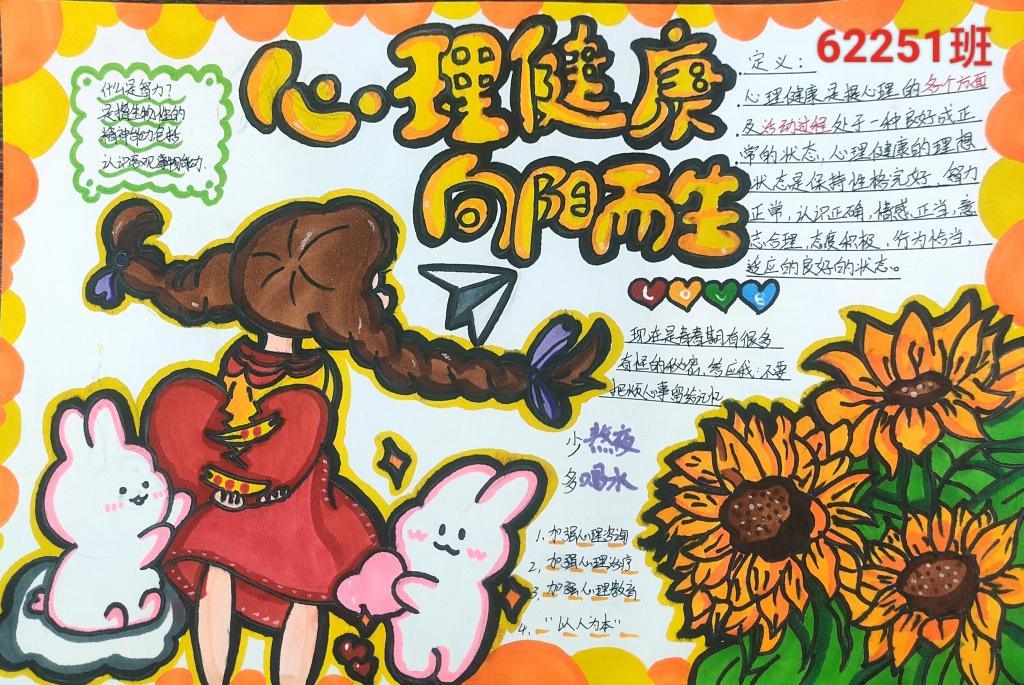 62251班
心理健康
向阳而生
什么是智力？
是指生物性的
精神能力包括
认识客观事物能力.
定义：
心理健康是指心理的各个方面
及活动过程处于一种良好或正
常的状态,心理健康的理想
状态是保持性格完好、智力
正常,认识正确,情感正当,意
志合理,态度积极,行为恰当,
适应的良好的状态。
LOVE
现在是青春期有很多
奇怪的秘密,答应我:不要
把烦心事留给记忆
少熬夜
多喝水
1、加强心理咨询
2、加强心理治疗
3、加强心理教育
4、"以人为本"